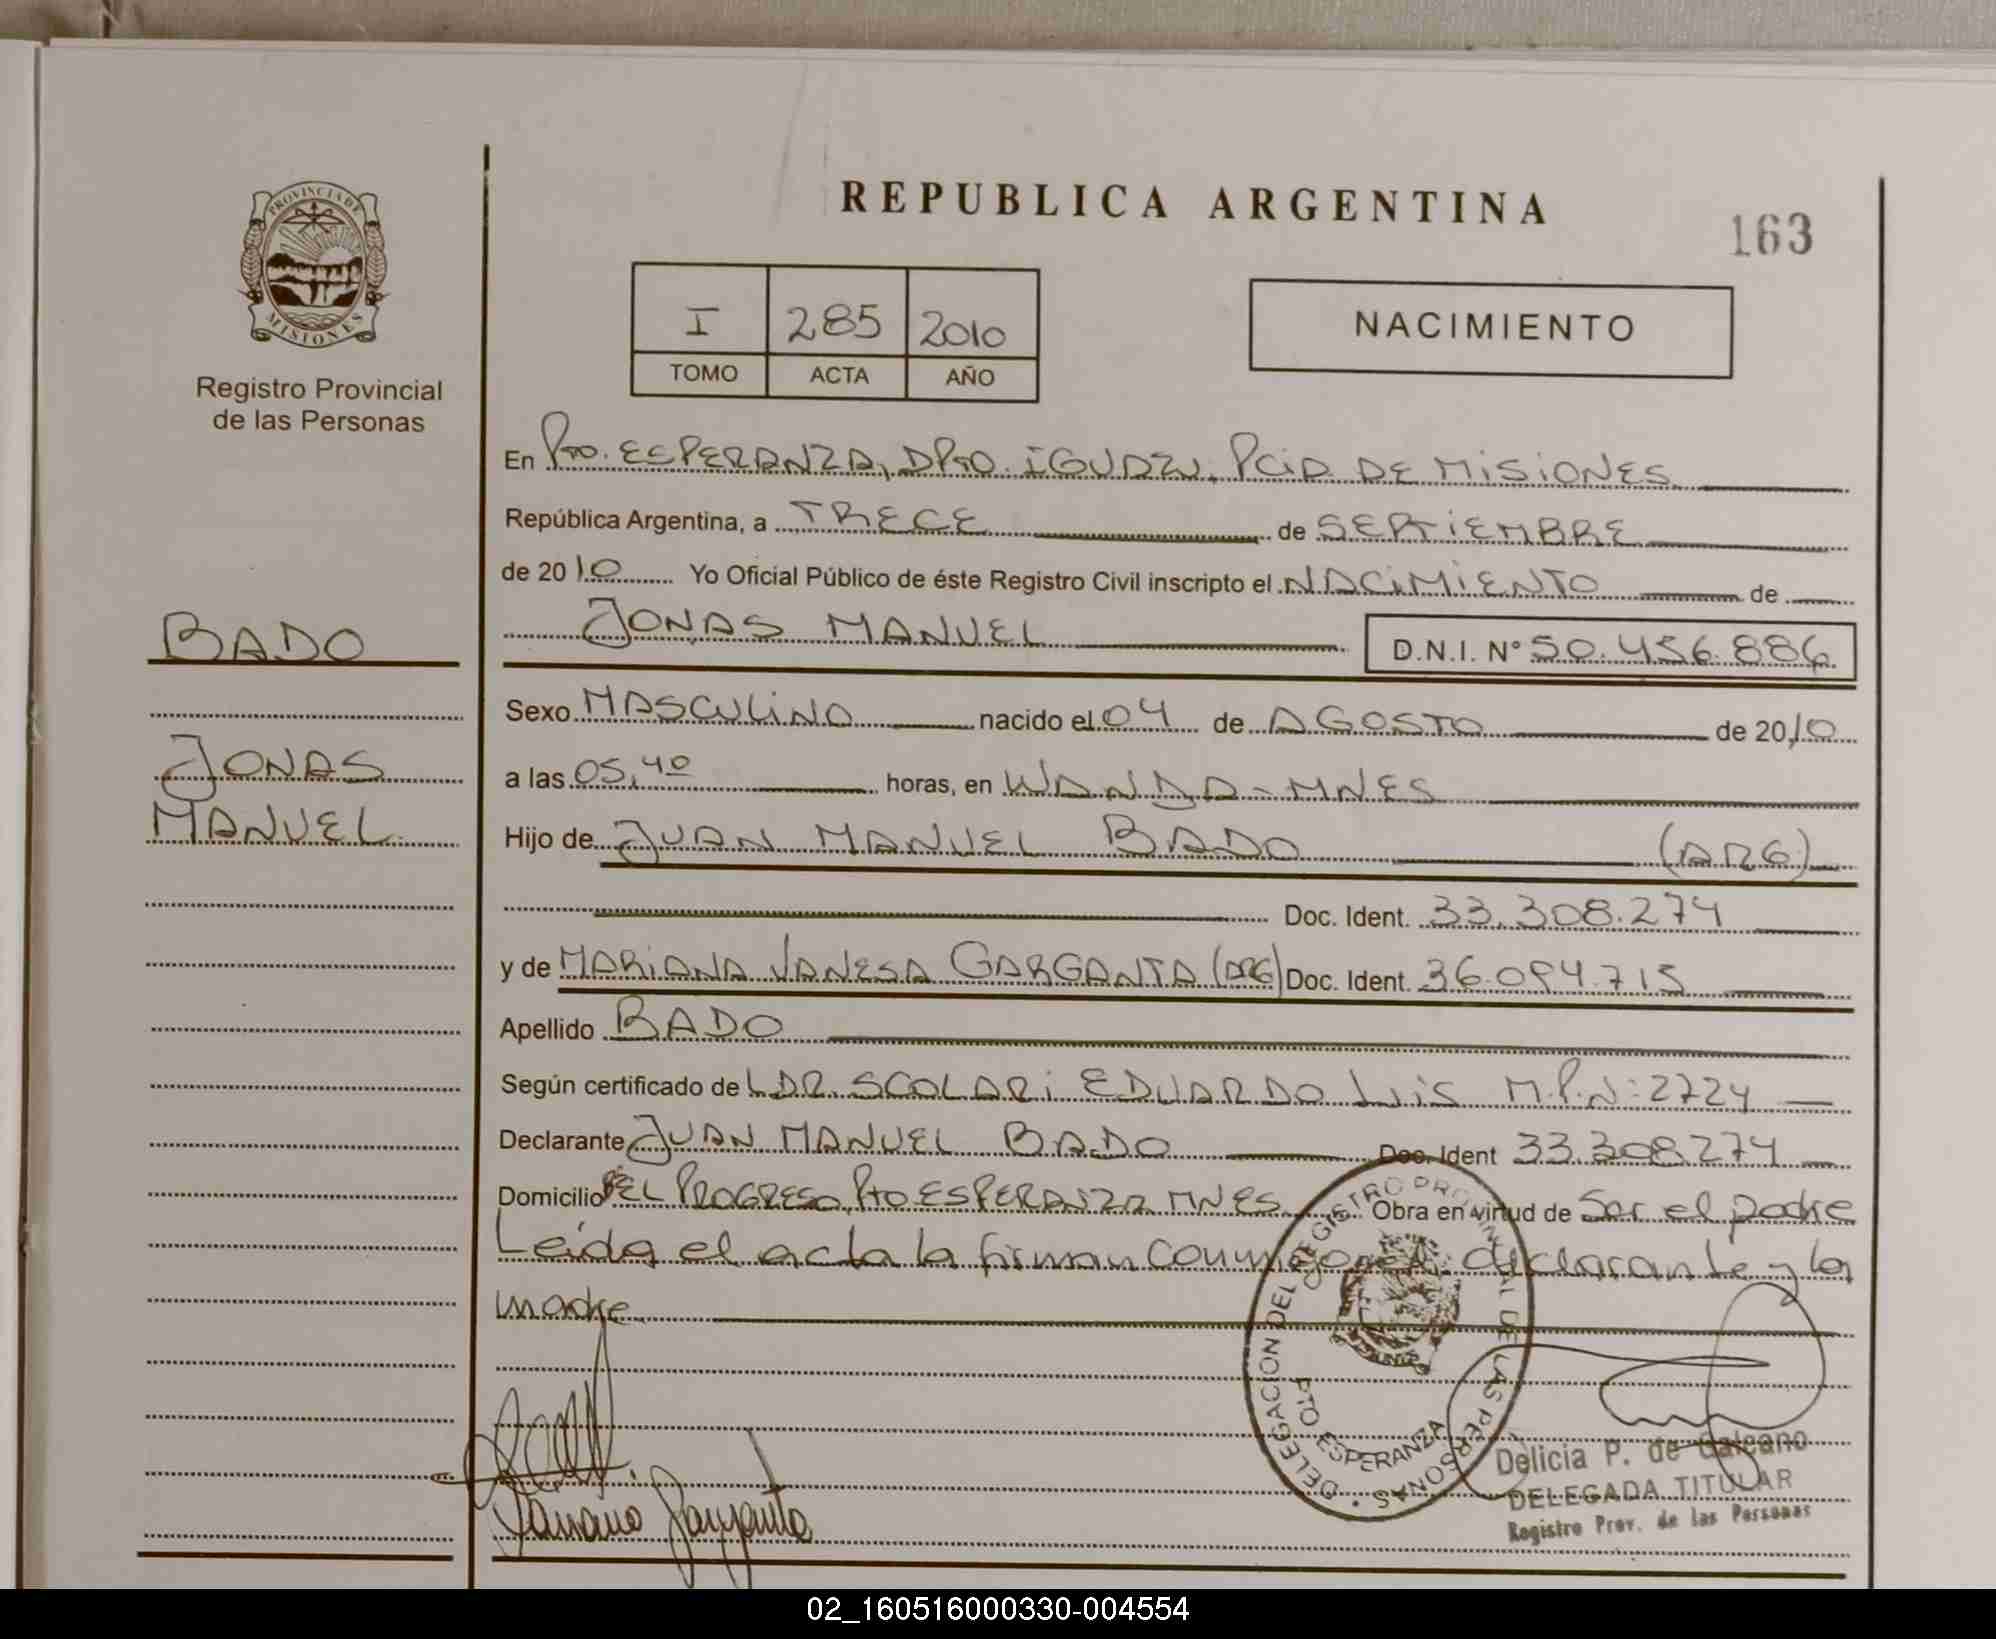 REPUBLICA ARGENTINA
163
PROVINCIA DE MISIONES
Registro Provincial
de las Personas
I 285 2010
TOMO ACTA AÑO
NACIMIENTO
En Pto. ESPERANZA, DPTO. IGUAZU, PCIA DE MISIONES
República Argentina, a TRECE de SEPTIEMBRE
de 2010 Yo Oficial Público de éste Registro Civil inscripto el NACIMIENTO de
JONAS MANUEL D.N.I. N° 50.456.886
BADO
JONAS
MANUEL
Sexo MASCULINO nacido el 04 de AGOSTO de 2010
a las 05,40 horas, en WANDA - MNES
Hijo de JUAN MANUEL BADO (ARG)
Doc. Ident. 33.308.274
y de MARIANA VANESA GARGANTA (ARG) Doc. Ident. 36.094.715
Apellido BADO
Según certificado de L DR. SCOLARI EDUARDO LUIS M.P.N: 2724
Declarante JUAN MANUEL BADO Doc. Ident 33.308.274
Domicilio Bº EL PROGRESO, Pto ESPERANZA MNES Obra en virtud de Ser el padre
Leída el acta la firman conmigo el declarante y la
madre
DELEGACION DEL REGISTRO PROVINCIAL DE LAS PERSONAS
PTO. ESPERANZA
Mariana Garganta
Delicia P. de Galeano
DELEGADA TITULAR
Registro Prov. de las Personas
02_160516000330-004554